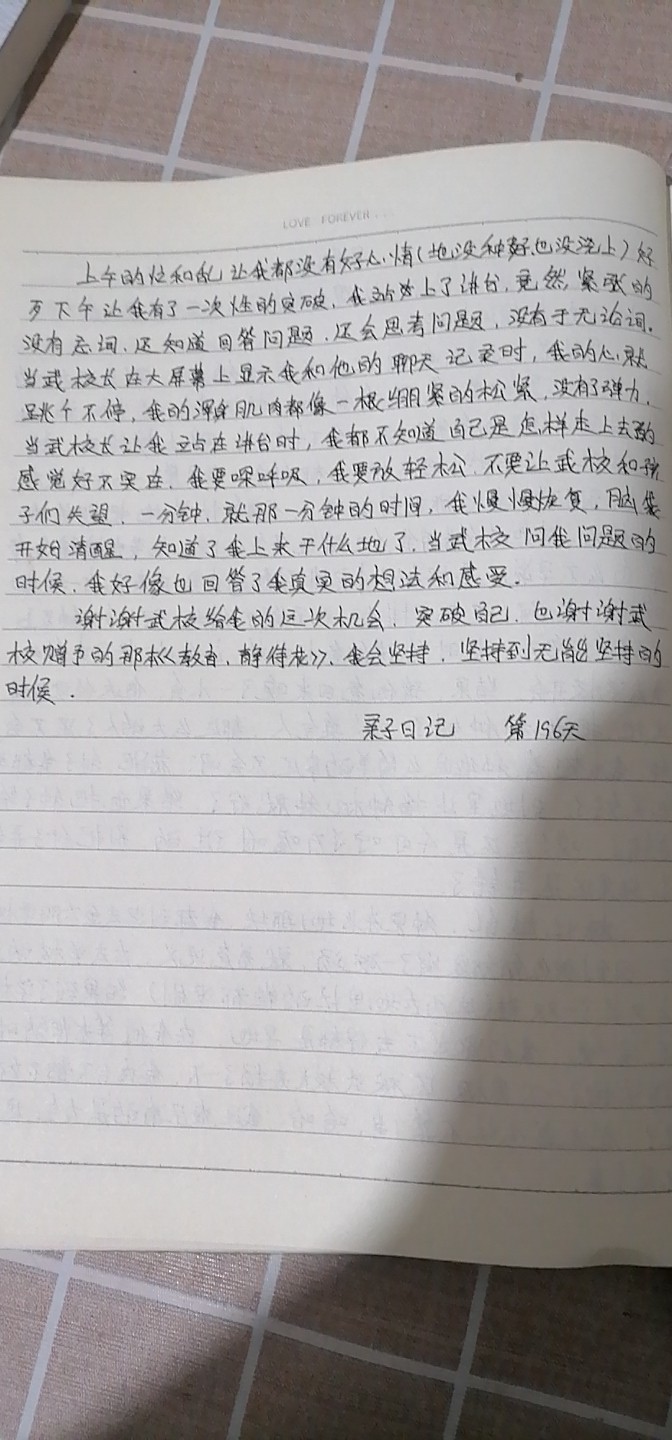 LOVE FOREVER
上午的忙和乱让我都没有好心情(地没种好也没浇上)好
歹下午让我有了一次性的突破。我站上了讲台,竟然紧张的
没有忘词,还知道回答问题,还会思考问题,没有于无论词。
当武校长在大屏幕上显示我和他的聊天记录时,我的心就
跳个不停,我的浑身肌肉都像一根绷紧的松紧,没有了弹力,
当武校长让我站在讲台时,我都不知道自己是怎样走上去的
感觉好不实在,我要深呼吸,我要放轻松,不要让武校和孩
子们失望,一分钟,就那一分钟的时间,我慢慢恢复,脑袋
开始清醒,知道了我上来干什么地了,当武校问我问题的
时候,我好像也回答了我真实的想法和感受。
谢谢武校给我的这次机会,突破自己,也谢谢武
校赠予的那本《教育,静待花》,我会坚持,坚持到无能坚持的
时候。
亲子日记 第196天